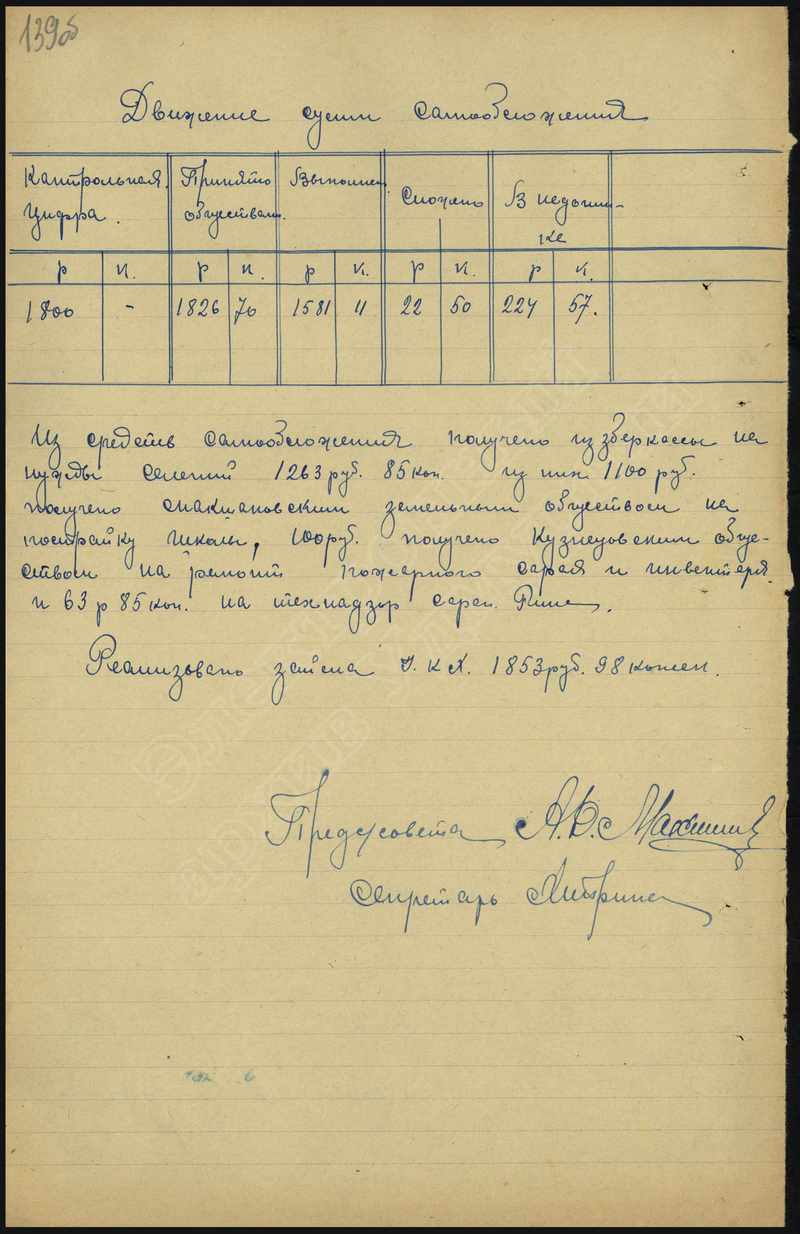 139об
Движение сумм самообложения
Контрольная Принято Выполнен. Сложено В недоим-
цифра. обществами. ке
р к. р к. р к. р к. р к.
1800 - 1826 70 1581 11 22 50 224 57.
Из средств самообложения получено из зберкассы на
нужды селений 1263 руб. 85 коп. из них 1100 руб.
получено земельным обществом на
постройку школы, 100 руб. получено Кузнецовским обще-
ством на ремонт пожарного сарая и инвентаря
и 63 р 85 коп. на технадзор
Реализовано займа 1853 руб. 98 копеек.
Предсовета А.В.
Секретарь